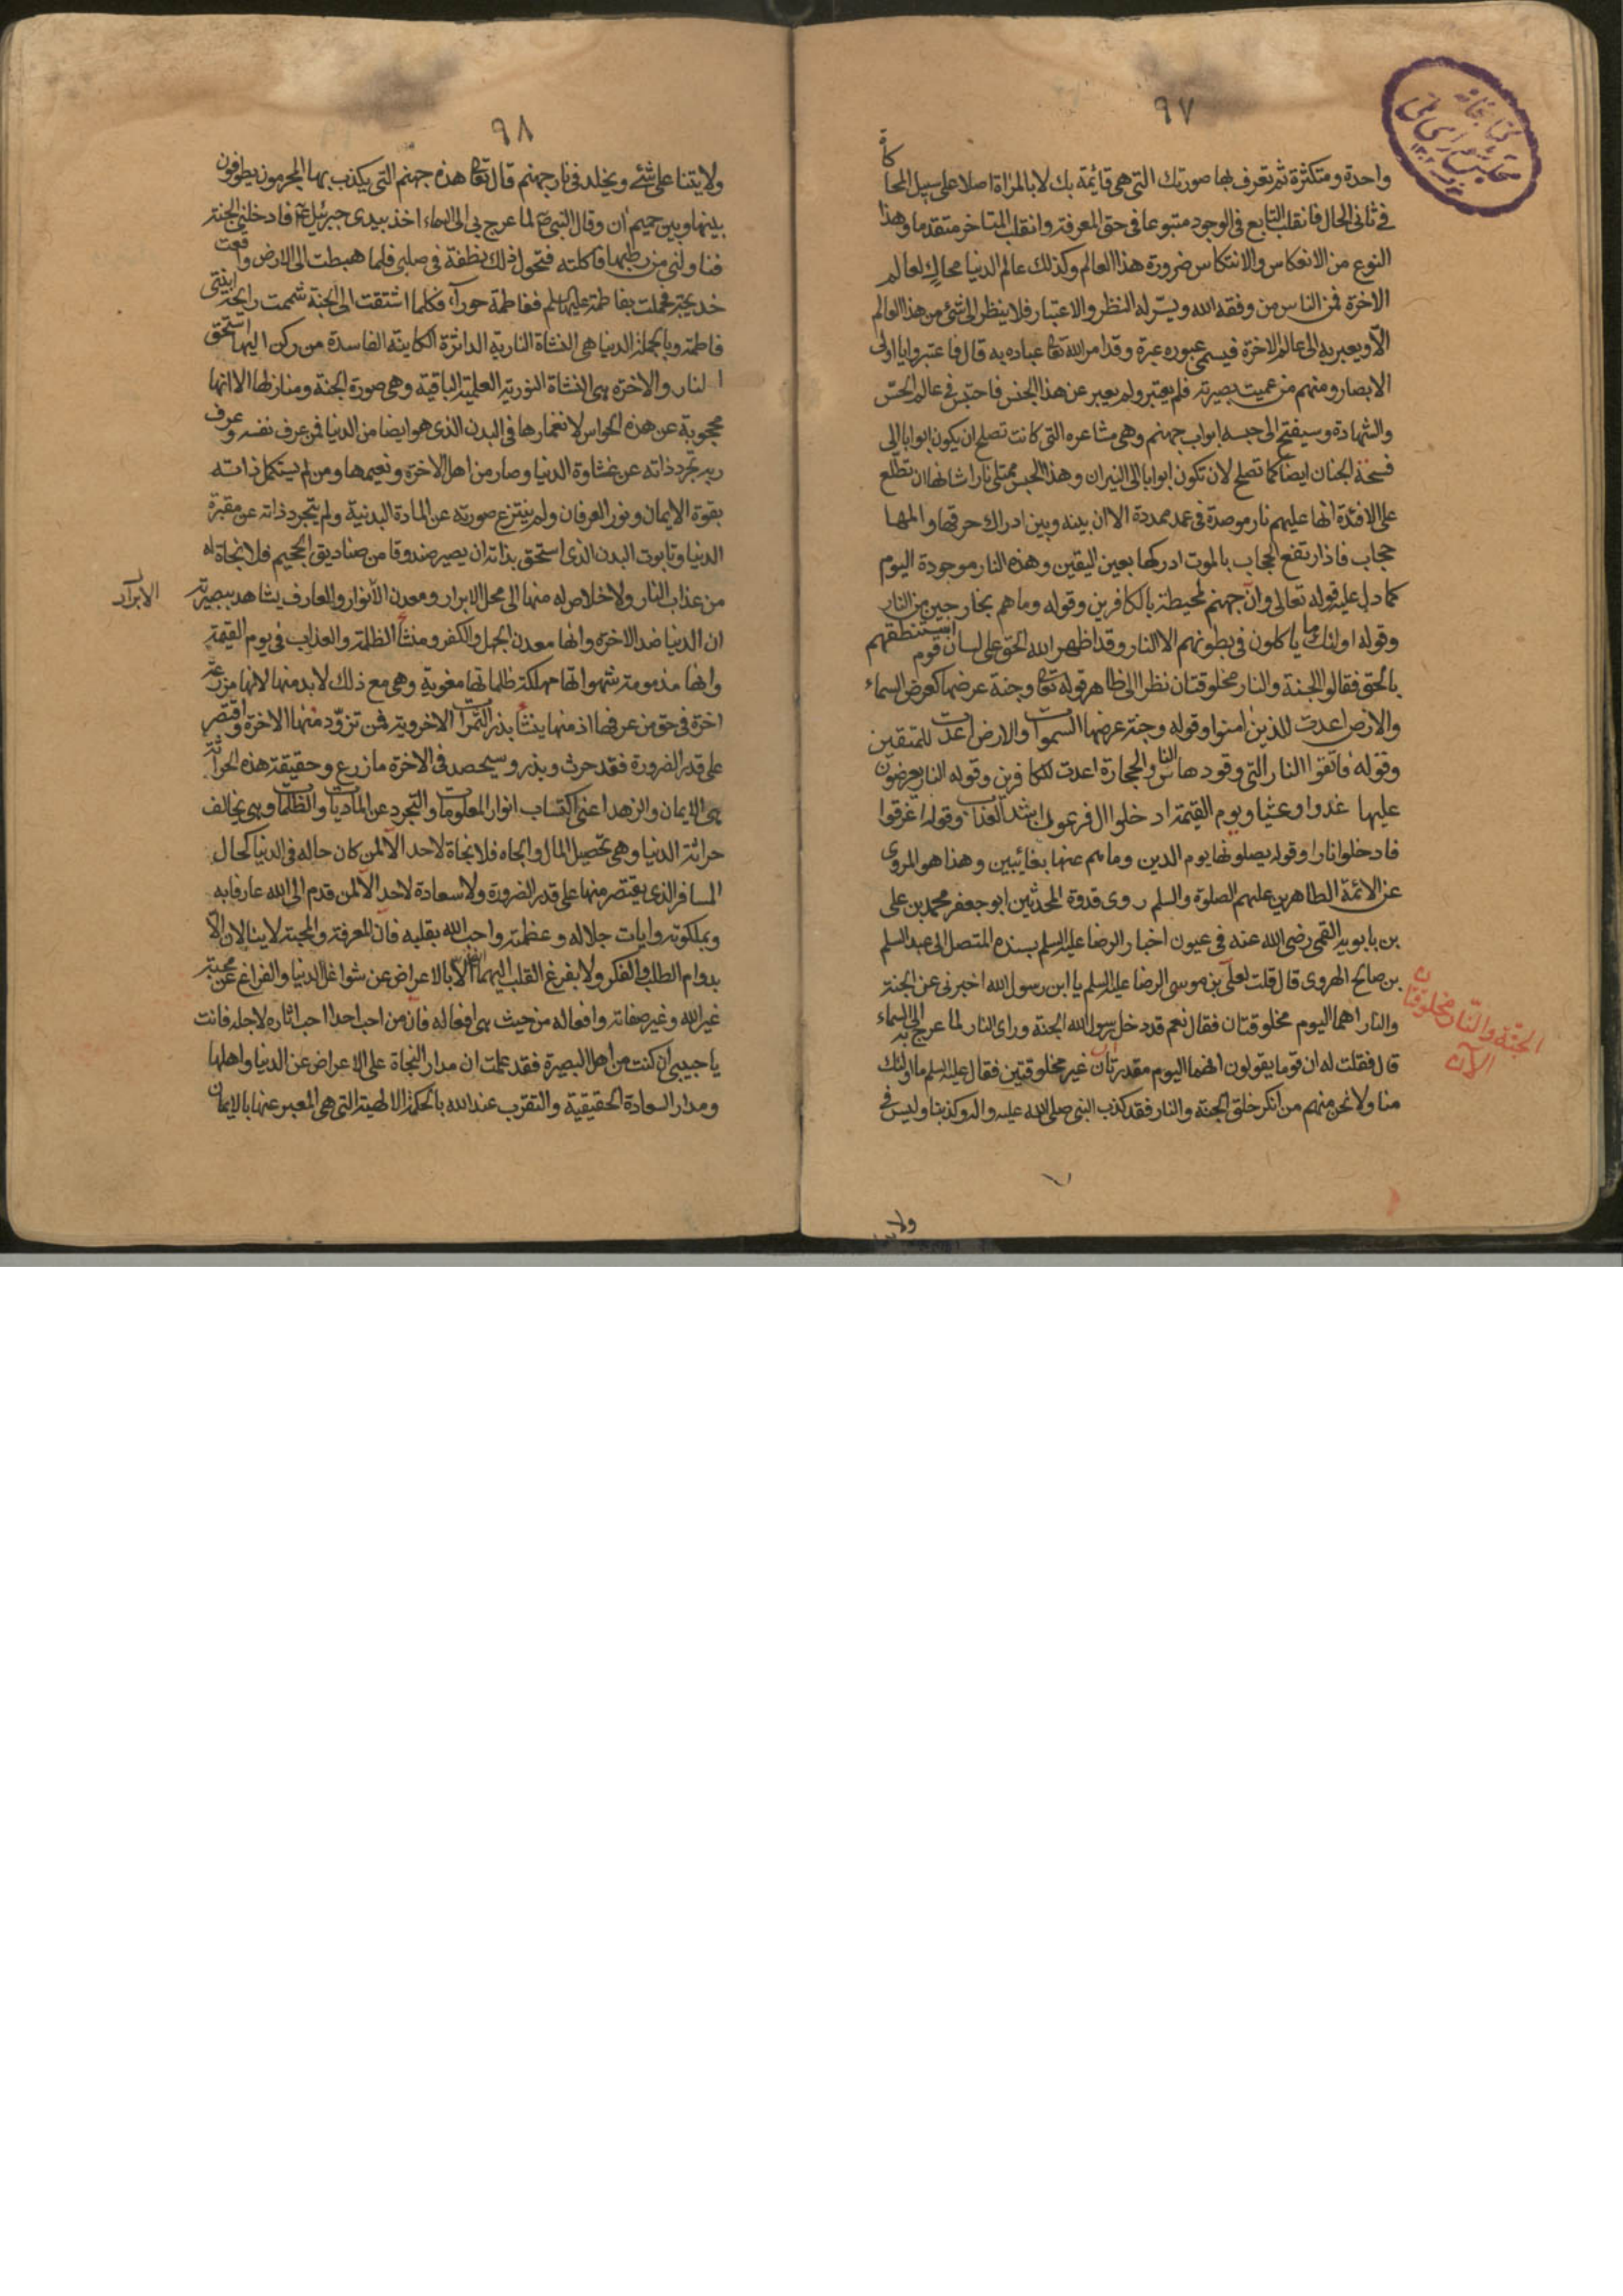 ٩٧
واحدة ومتكثرة ثم تعرف بها صورتك التى هى قائمة بك لا بالمراة اصلا على سبيل المحاكاة
فى ثانى الحال فانقلب التابع فى الوجود متبوعا فى حق المعرفة وانقلب المتاخر متقدما وهذا
النوع من الانعكاس والانتكاس ضرورة هذا العالم وكذلك عالم الدنيا محاك لعالم
الاخرة فمن الناس من وفقه الله ويسّر له النظر والاعتبار فلا ينظر الى شئ من هذا العالم
الّا ويعبر به الى عالم الاخرة فيسمى عبوره عبرة وقد امر الله تعا عباده به قال فاعتبروا يا اولى
الابصار ومنهم من عميت بصيرته فلم يعتبر ولم يعبر عن هذا الجنس فاحتبس فى عالم الحسّ
والشهادة وسيفتح الى حبسه ابواب جهنم وهى مشاعره التى كانت تصلح ان يكون ابوابا الى
فسحة الجنان ايضا كما تصلح لان تكون ابوابا الى النيران وهذا الحبس ممتلى نارا شانها ان تطّلع
على الافئدة انها عليهم نار موصدة فى عمد ممددة الا ان بينه وبين ادراك حرقتها والمها
حجاب فاذا ارتفع الحجاب بالموت ادركها بعين اليقين وهذه النار موجودة اليوم
كما دل عليه قوله تعالى وان جهنم لمحيطة بالكافرين وقوله وما هم بخارجين من النار
وقوله اولئك ما ياكلون فى بطونهم الا النار وقد اظهر الله الحق على لسان قوم استنطقهم
بالحق فقالوا الجنة والنار مخلوقتان نظرا الى ظاهر قوله تعا وجنة عرضها كعرض السماء
والارض اعدت للذين امنوا وقوله وجنة عرضها السموات والارض اعدت للمتقين
وقوله فاتقوا النار التى وقودها الناس والحجارة اعدت للكافرين وقوله النار يعرضون
عليها غدوا وعشيا ويوم القيمة ادخلوا ال فرعون اشد العذاب وقوله اغرقوا
فادخلوا نارا وقوله يصلونها يوم الدين وما هم عنها بغائبين وهذا هو المروى
عن الائمة الطاهرين عليهم الصلوة والسلم روى قدوة المحدثين ابو جعفر محمد بن على
بن بابويه القمى رضى الله عنه فى عيون اخبار الرضا عليه السلم بسنده المتصل الى عبد السلم
بن صالح الهروى قال قلت لعلى بن موسى الرضا عليه السلم يا ابن رسول الله اخبرنى عن الجنة
والنار اهما اليوم مخلوقتان فقال نعم قد دخل رسول الله الجنة وراى النار لما عرج به الى السماء
قال فقلت له ان قوما يقولون انهما اليوم مقدرتان غير مخلوقتين فقال عليه السلم ما اولئك
منا ولا نحن منهم من انكر خلق الجنة والنار فقد كذب النبى صلى الله عليه واله وكذبنا وليس فى
الجنّة والنّار مخلوقتان
الآن
٩٨
ولايتنا على شئ ويخلد فى نار جهنم قال تعا هذه جهنم التى يكذب بها المجرمون يطوفون
بينها وبين حميم ان وقال النبى ص لما عرج بى الى السماء اخذ بيدى جبرئيل ع فادخلنى الجنة
فناولنى من رطبها فاكلته فتحول ذلك نطفة فى صلبى فلما هبطت الى الارض واقعت
خديجة فحملت بفاطمة عليها سلم ففاطمة حوراء فكلما اشتقت الى الجنة شممت رايحة ابنتى
فاطمة وبالجملة الدنيا هى النشاة النارية الداثرة الكاينة الفاسدة من ركن اليها استحق
النار والاخرة هى النشاة النورية العلمية الباقية وهى صورة الجنة ومنازلها الا انها
محجوبة عن هذه الحواس لانغمارها فى البدن الذى هو ايضا من الدنيا فمن عرف نفسه وعرف
ربه تجرد ذاته عن غشاوة الدنيا وصار من اهل الاخرة ونعيمها ومن لم يستكمل ذاته
بقوة الايمان ونور العرفان ولم ينتزع صورته عن المادة البدنية ولم يتجرد ذاته عن مقبرة
الدنيا وتابوت البدن الذى استحق بذاته ان يصير صندوقا من صناديق الجحيم فلا نجاة له
من عذاب النار ولا خلاص له منها الى محل الابرار ومعدن الانوار والعارف يشاهد ببصيرته
الابرار
ان الدنيا ضد الاخرة وانها معدن الجهل والكفر ومنشأ الظلمة والعذاب فى يوم القيمة
وانها مذمومة شهواتها مهلكة ظلماتها مغوية وهى مع ذلك لا بد منها لانها مزرعة
اخرة فى حق من عرفها اذ منها ينشأ بذر الثمرات الاخروية فمن تزوّد منها الاخرة واقتصر
على قدر الضرورة فقد حرث وبذر وسيحصد فى الاخرة ما زرع وحقيقة هذه الحراثة
هى الايمان والزهد اعنى اكتساب انوار المعلومات والتجرد عن الماديات والظلمات وهى تخالف
حراثة الدنيا وهى تحصيل المال والجاه فلا نجاة لاحد الا لمن كان حاله فى الدنيا كحال
المسافر الذى يقتصر منها على قدر الضرورة ولا سعادة لاحد الا لمن قدم الى الله عارفا به
وبملكوته وايات جلاله وعظمته واحب الله بقلبه فان المعرفة والمحبة لا ينالان الّا
بدوام الطلب والفكر ولا يفرغ القلب اليهما الا بالاعراض عن شواغل الدنيا والفراغ عن محبة
غير الله وغير صفاته وافعاله من حيث هى افعاله فان من احب احدا احب اثاره لاجله فانت
يا حبيبى ان كنت من اهل البصيرة فقد علمت ان مدار النجاة على الاعراض عن الدنيا واهلها
ومدار السعادة الحقيقية والتقرب عند الله بالحكمة الالهية التى هى المعبر عنها بالايمان